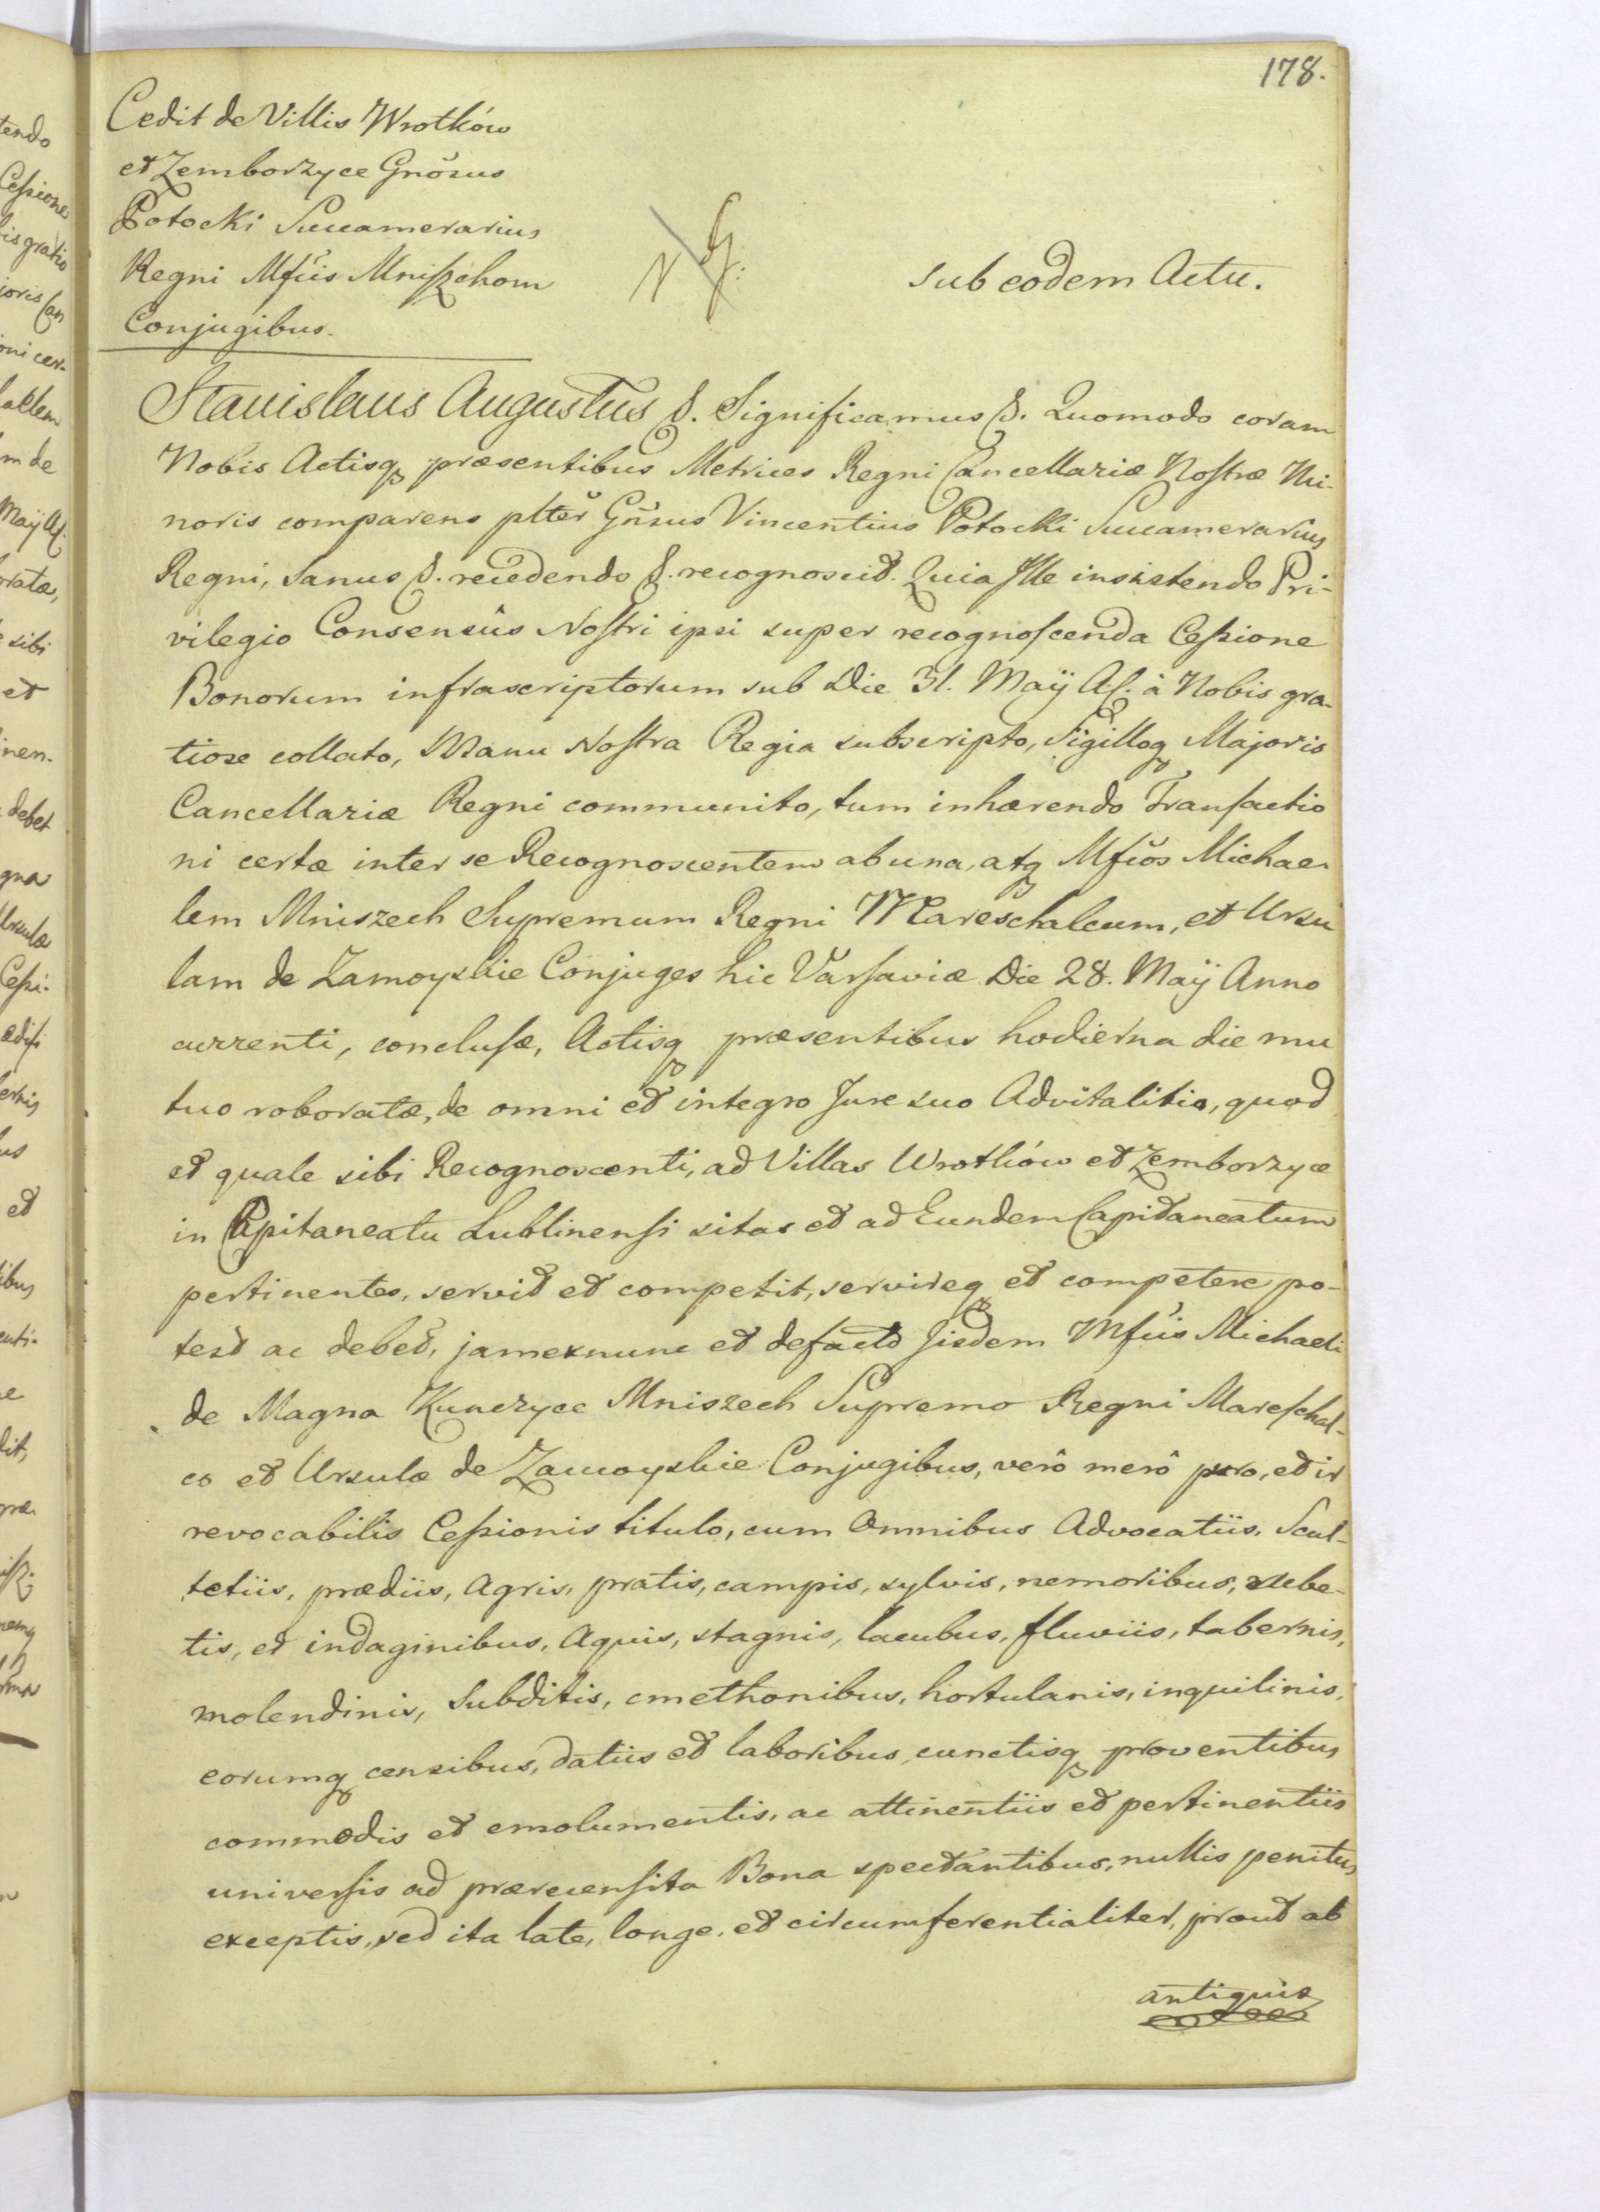 178.
Cedit de Villis Wrotków
et Zemborzyce Gnõsus
Potocki Succamerarius
Regni Mfcis Mniszchom
Conjugibus.
Sub eodem Actu.
Stanislaus Augustus &. Significamus &. Quomodo coram
Nobis Actisq præsentibus Metrices Regni Cancellariæ Nostræ Mi-
noris comparens plter Gnsus Vincentius Potocki Succamerarius
Regni, Sanus &. recedendo &. recognoscit. Quia Ille insistendo Pri-
vilegio Consensûs Nostri ipsi super recognoscenda Cessione
Bonorum infrascriptorum sub Die 31. Maÿ A.C. à Nobis gra-
tiose collato, Manu Nostra Regia subscripto, Sigilloq Majoris
Cancellariæ Regni communito, tum inhærendo Transactio
ni certæ inter se Recognoscentem ab una, atq Mfcos Michae-
lem Mniszech Supremum Regni Mareschalcum, et Ursu
lam de Zamoyskie Conjuges hic Varsaviæ Die 28. Maÿ Anno
currenti, conclusæ, Actisq præsentibus hodierna die mu
tuo roboratæ, de omni et integro Jure suo Advitalitio, quod
et quale sibi Recognoscenti, ad Villas Wrotków et Zemborzyce
in Capitaneatu Lublinensi sitas et ad Eundem Capitaneatum
pertinentes, servit et competit, servireq et competere po-
test ac debet, jam ex nunc et de facto Jisdem Mfcis Michaeli
de Magna Kunczyce Mniszech Supremo Regni Mareschal-
co et Ursulæ de Zamoyskie Conjugibus, verô merô puro, et ir
revocabilis Cessionis titulo, cum Omnibus Advocatiis, Scul-
tetiis, prædiis, Agris, pratis, campis, sylvis, nemoribus, rube-
tis, et indaginibus, Aquis, stagnis, lacubus, fluviis, tabernis,
molendinis, Subditis, cmethonibus, hortulanis, inquilinis,
eorumq censibus, datiis et laboribus, cunctisq proventibus
commodis et emolumentis, ac attinentiis et pertinentiis
universis ad præcensita Bona spectantibus, nullis penitus
exceptis, sed ita late, longe, et circumferentialiter, prout ab
antiquis